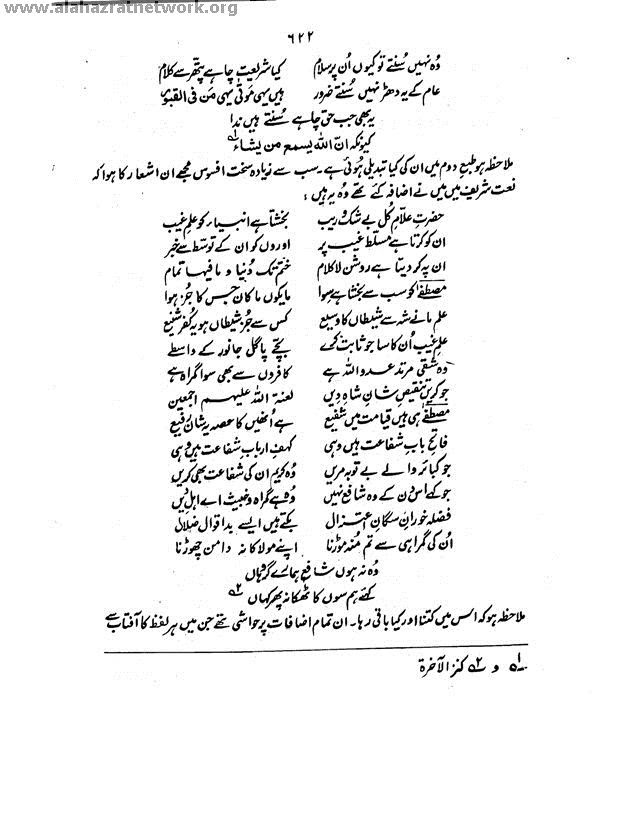 www.alahazratnetwork.org
۶۲۲
وہ نہیں سُنتے تو کیوں اُن پر سلام کیا شریعت چاہے پتھر سے کلام
عام کے یہ دھڑ نہیں سُنتے ضرور ہیں یہی موتٰی یہی من فی القبور
یہ بھی جب حق چاہے سُنتے ہیں ندا
کیونکہ انّ اللہ یسمع من یشاء ۱؎
ملاحظہ ہو طبع دوم میں ان کی کیا تبدیلی ہُوئی ہے۔ سب سے زیادہ سخت افسوس مجھے ان اشعار کا ہوا کہ
نعت شریف میں میں نے اضافہ کئے تھے وہ یہ ہیں :
حضرتِ علّامِ کُل بے شک و ریب بخشتا ہے انبیاء کو علمِ غیب
ان کو کرتا ہے مسلط غیب پر اوروں کو ان کے توسّط سے خبر
ان پہ کر دیتا ہے روشن لاکلام ختم تک دُنیا و مافیہا تمام
مصطفےٰ کو سب سے بخشا ہے سوا مایکوں ماکان جس کا جُز ہوا
علم مانے شہ سے شیطاں کا وسیع کس سے جُز شیطاں ہو یہ کفرِ شنیع
علمِ غیب اُن کا سا جو ثابت کرے بچّے پاگل جانور کے واسطے
وہ شقی مرتد عدو اللہ ہے کافروں سے بھی سوا گمراہ ہے
جو کریں تنقیصِ شانِ شاہِ دیں لعنۃ اللہ علیہم اجمعین
مصطفےٰ ہی ہیں قیامت میں شفیع ہے اُنھیں کا حصہ یہ شانِ رفیع
فاتحِ بابِ شفاعت ہیں وہی کہفِ اربابِ شفاعت ہیں وہی
جو کبائر والے بے توبہ مریں وُہ کریم ان کی شفاعت بھی کریں
جو کہے اس دن کے وہ شافع نہیں وُہ ہے گمراہ و خبیث اے اہلِ دیں
فضلہ خورانِ سگانِ اعتزال بکتے ہیں ایسے بد اقوال ضلال
اُن کی گمراہی سے تم مُنہ موڑنا اپنے مولا کا نہ دامن چھوڑنا
وُہ نہ ہوں شافع ہمارے گر وہاں
کہئے ہم سوں کا ٹھکانہ پھر کہاں ۲؎
ملاحظہ ہو کہ اس میں کتنا اور کیا باقی رہا۔ ان تمام اضافات پر حواشی تھے جن میں ہر لفظ کا آفتاب سے
۱؎ و ۲؎ کنز الآخرۃ